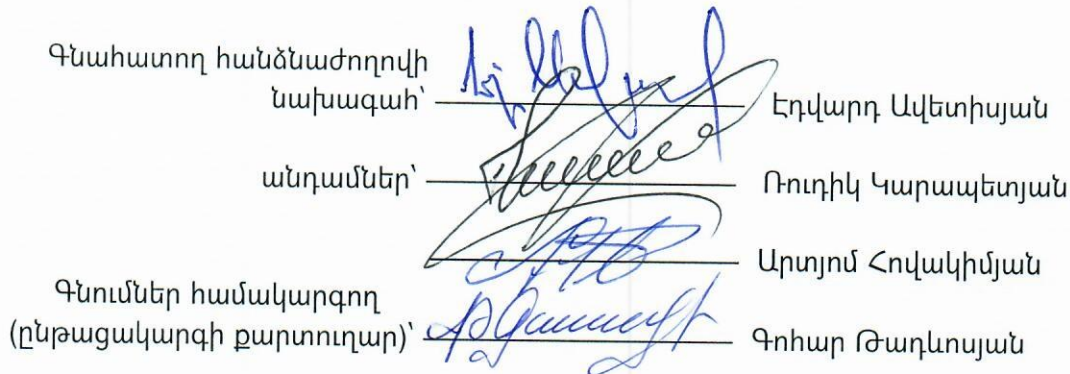 Գնահատող հանձնաժողովի
նախագահ՝ Էդվարդ Ավետիսյան
անդամներ՝ Ռուդիկ Կարապետյան
Արտյոմ Հովակիմյան
Գնումներ համակարգող
(ընթացակարգի քարտուղար)՝ Գոհար Թադևոսյան